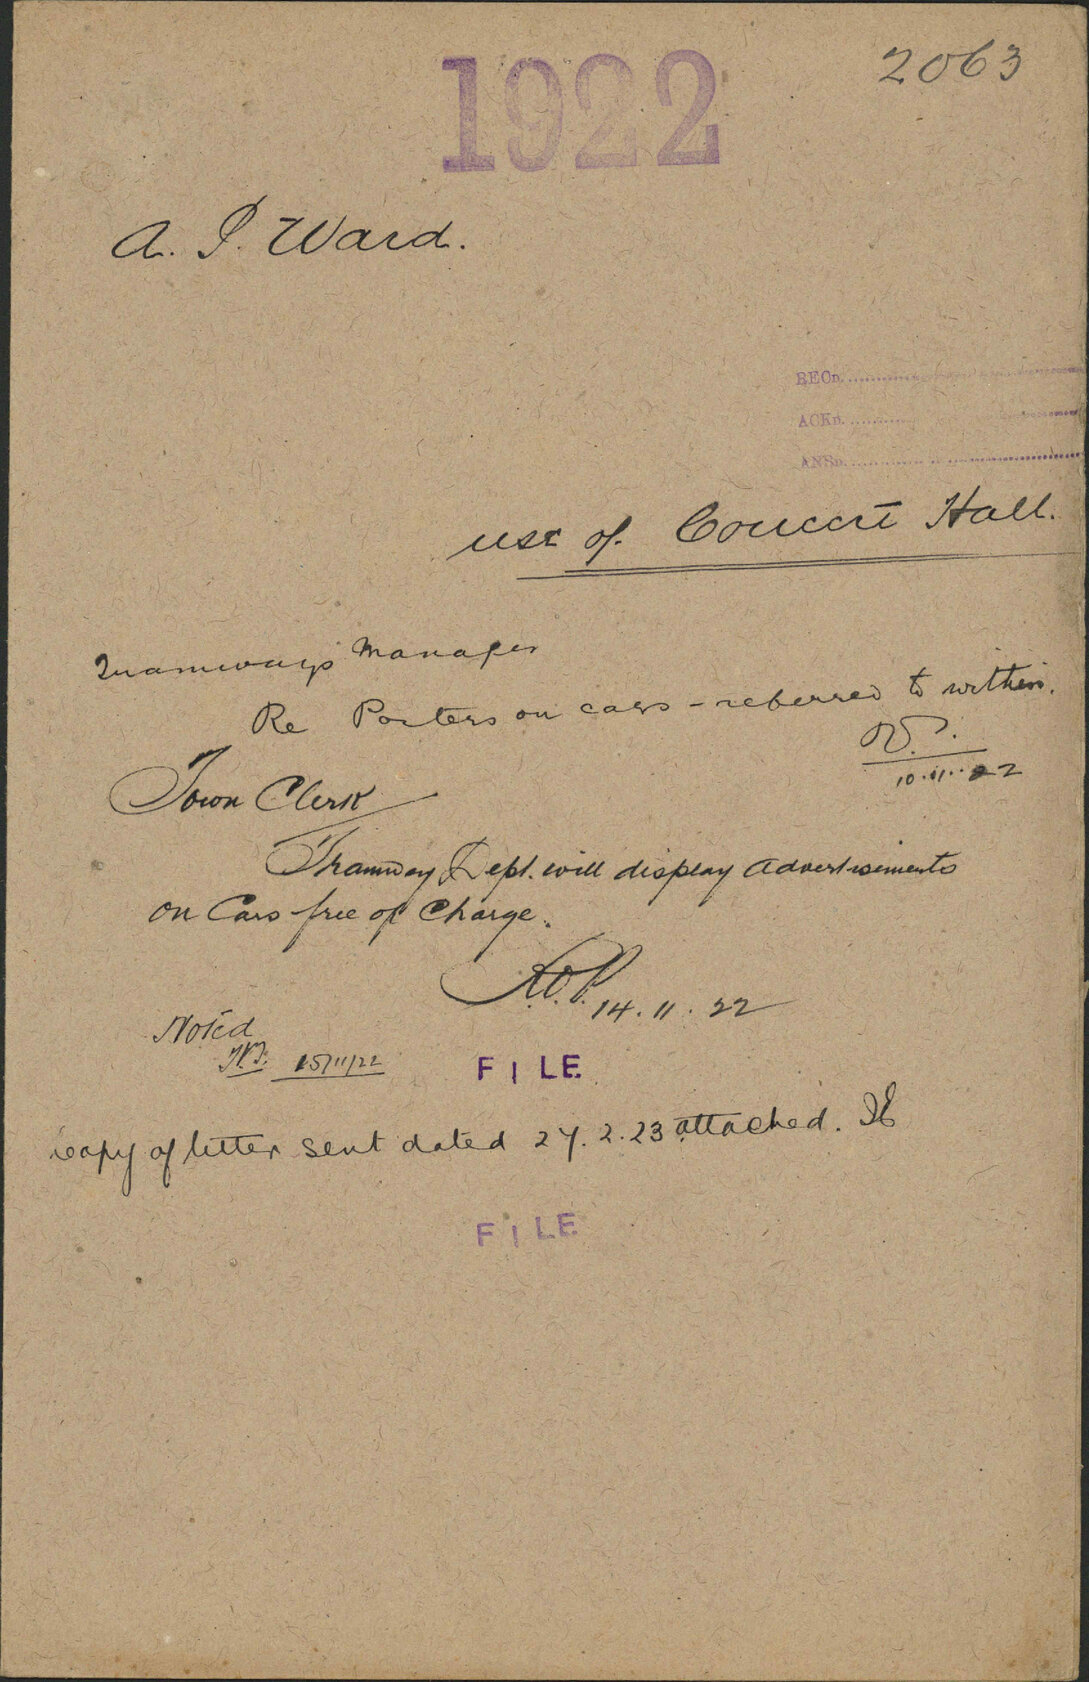 1922
2063
A. J. Ward.
RECD.
ACKD.
ANSD.
use of Concert Hall.
Tramways Manager
Re Posters on cars - referred to within.
10.11.22
Town Clerk
Tramway Dept. will display Advertisements
on Cars free of Charge.
14.11.22
Noted
15/11/22
FILE
copy of letter sent dated 27.2.23 attached.
FILE